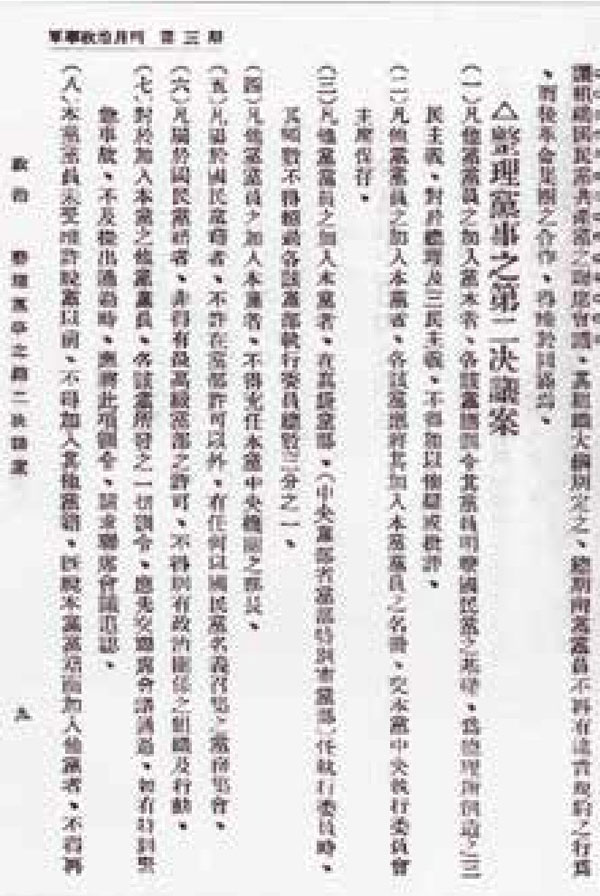 軍事政治月刊 第三期
組織國民黨共產黨之聯席會議、其組織大綱別定之、總期兩黨黨員不再有違背規約之行為
、而後革命集團之合作、得臻於圓滿焉、
△整理黨事之第二决議案
(一)凡他黨黨員之加入本黨者、各該黨應訓令其黨員明瞭國民黨之基礎、為總理所創造之三
民主義、對於總理及三民主義、不得加以懷疑或批評、
(二)凡他黨黨員之加入本黨者、各該黨應將其加入本黨黨員之名冊、交本黨中央執行委員會
主席保存、
(三)凡他黨黨員之加入本黨者、在高級黨部、(中央黨部省黨部特別市黨部)任執行委員時、
其額數不得超過各該黨部執行委員總數三分之一、
(四)凡他黨黨員之加入本黨者、不得充任本黨中央機關之部長、
(五)凡屬於國民黨籍者、不許在黨部許可以外、有任何以國民黨名義召集之黨務集會、
(六)凡屬於國民黨籍者、非得有最高級黨部之許可、不得別有政治關係之組織及行動、
(七)對於加入本黨之他黨黨員、各該黨所發之一切訓令、應先交聯席會議通過、如有特別緊
急事故、不及提出通過時、應將此項訓令、請求聯席會議追認、
(八)本黨黨員未受准許脫黨以前、不得加入其他黨籍、既脫本黨黨籍而加入他黨者、不得再
政治 整理黨事之第二决議案 九